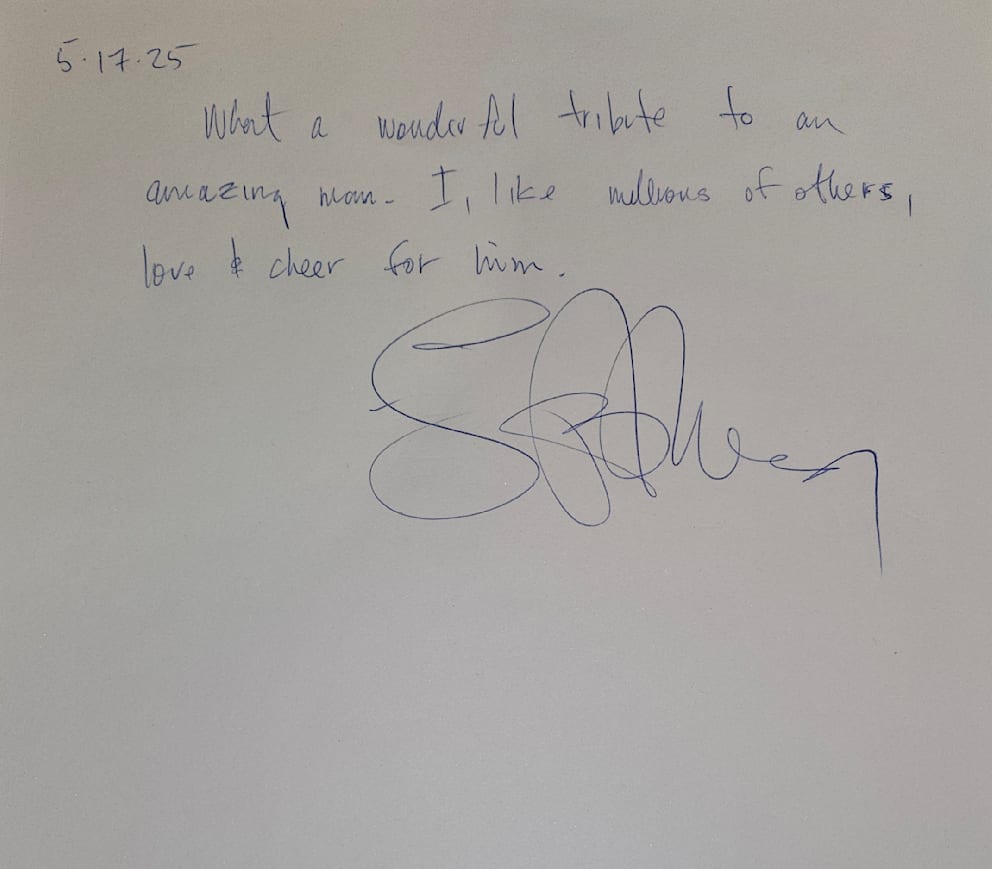 5.17.25
What a wonderful tribute to an
amazing man. I, like millions of others,
love & cheer for him.